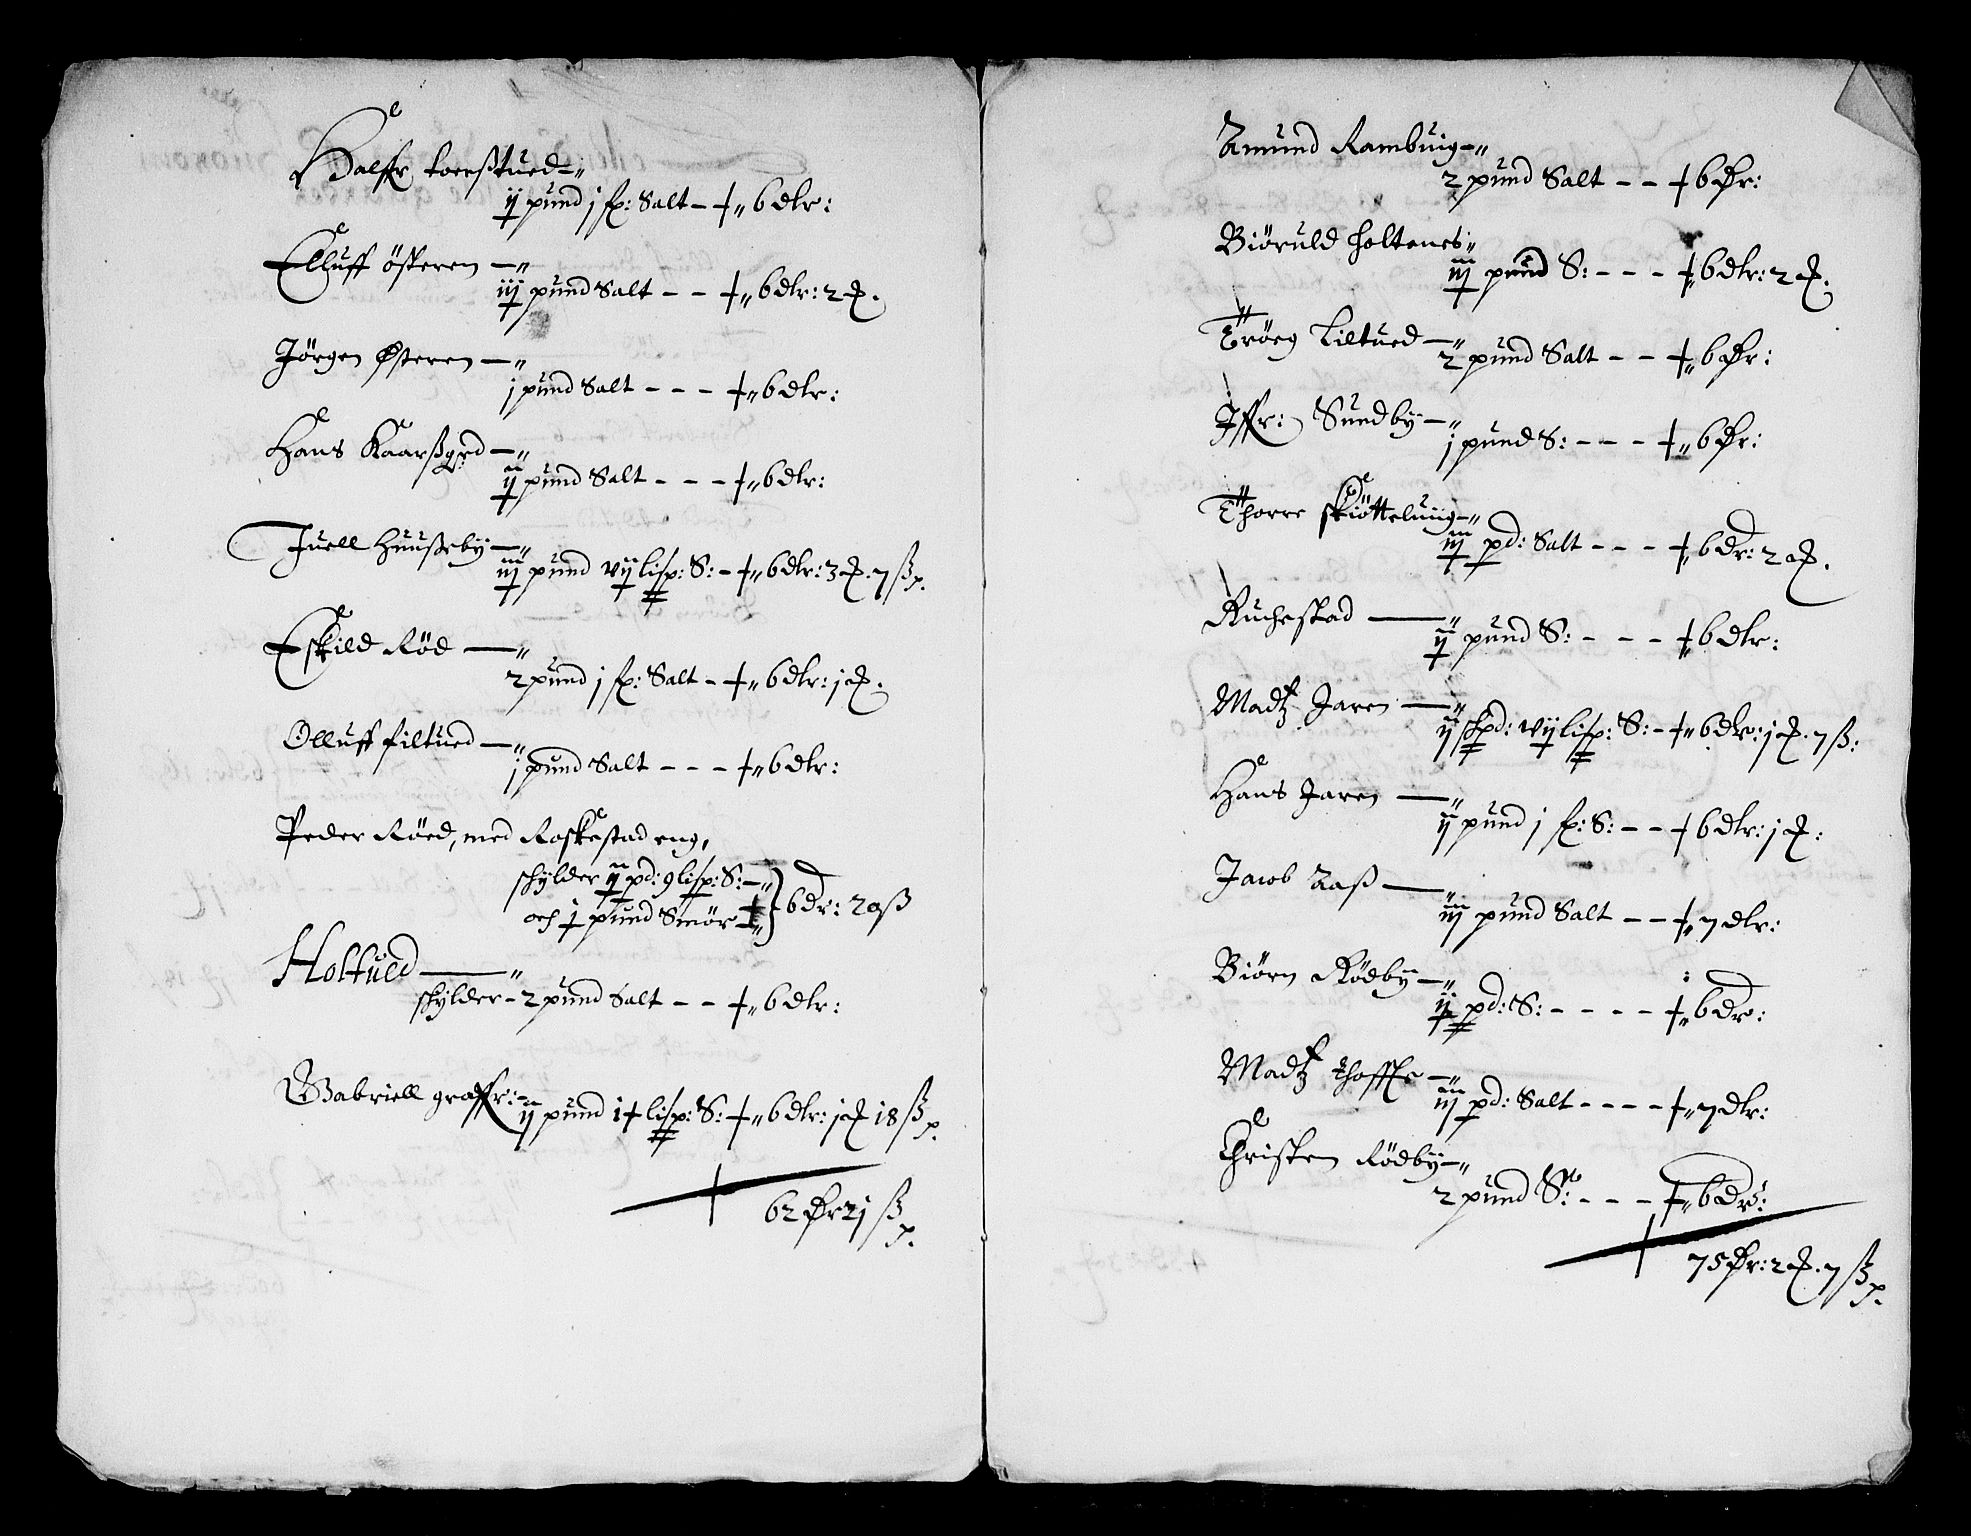 Halffr toerßtued –"
ij pund j fr: Salt – + „ 6 dlr:
Elluff Österen –"
iij pund Salt – – + „ 6 dlr: 2 ꝗ.
Jörgen Østeren –"
j pund Salt – – – + „ 6 dlr:
Hans Kaarßgrd –"
ij pund Salt – – – + „ 6 dlr:
Juell Huußeby –"
iij pund vij lisp: S: – + „ 6 dlr: 3 ꝗ. 7 ß p.
Eskild Röd –"
2 pund j fr: Salt – + „ 6 dlr: j ꝗ.
Olluff filtued –"
j pund Salt – – – + „ 6 dlr:
Peder Röed, med Roskestad eng,
skylder ij pd: 9 lisp: S: –"
och j pund Smör –" } 6 dr: 20 ß
Holtued –"
skylder – 2 pund Salt – – + „ 6 dlr:
Gabriell graffr: –
ij pund 14 lisp: S: + „ 6 dlr: j ꝗ 18 ß p.
62 dr 21 ß p.
Amund Rambuig –"
2 pund Salt – – + 6 dr:
Biöruld Holtenes "
iij pund S: – – – + „ 6 dlr: 2 ꝗ.
Tröeg Liltued –"
2 pund Salt – – + „ 6 dr:
Iffr: Sundby –"
j pund S: – – – + „ 6 dr:
Thorre skiötteluiig –"
iij pd: Salt – – – + „ 6 dr: 2 ꝗ.
Ruchestad –"
ij pund S: – – – + „ 6 dlr:
Madtz Jaren –"
ij skpd: vij lisp: S: – + „ 6 dlr: j ꝗ. 7 ß:
Hans Jaren –"
ij pund j fr: S: – – + 6 dlr: j ꝗ:
Jacob Aaß –"
iij pund Salt – – + „ 7 dlr:
Biörn Rödby –"
ij pd: S: – – – – + „ 6 dr:
Madtz Thofft –"
iij pd: Salt – – – – + „ 7 dlr:
Christen Rödby –"
2 pund S: – – – + „ 6 dr:
75 dr: 2 ꝗ. 7 ß p.